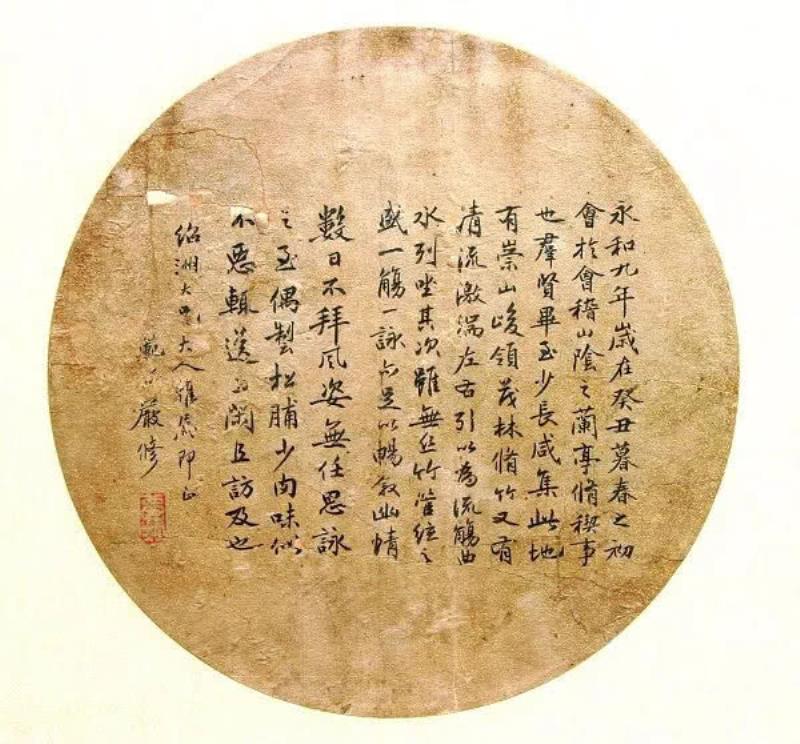 永和九年歲在癸丑暮春之初
會於會稽山陰之蘭亭脩稧事
也羣賢畢至少長咸集此地
有崇山峻領茂林脩竹又有
清流激湍左右引以為流觴曲
水列坐其次雖無絲竹管絃之
盛一觴一詠亦足以暢敘幽情
數日不拜風姿無任思詠
之至偶製松脯少肉味似
不惡輒送閑且訪及也
紹洲大兄大人雅鑒即正
範孫嚴修